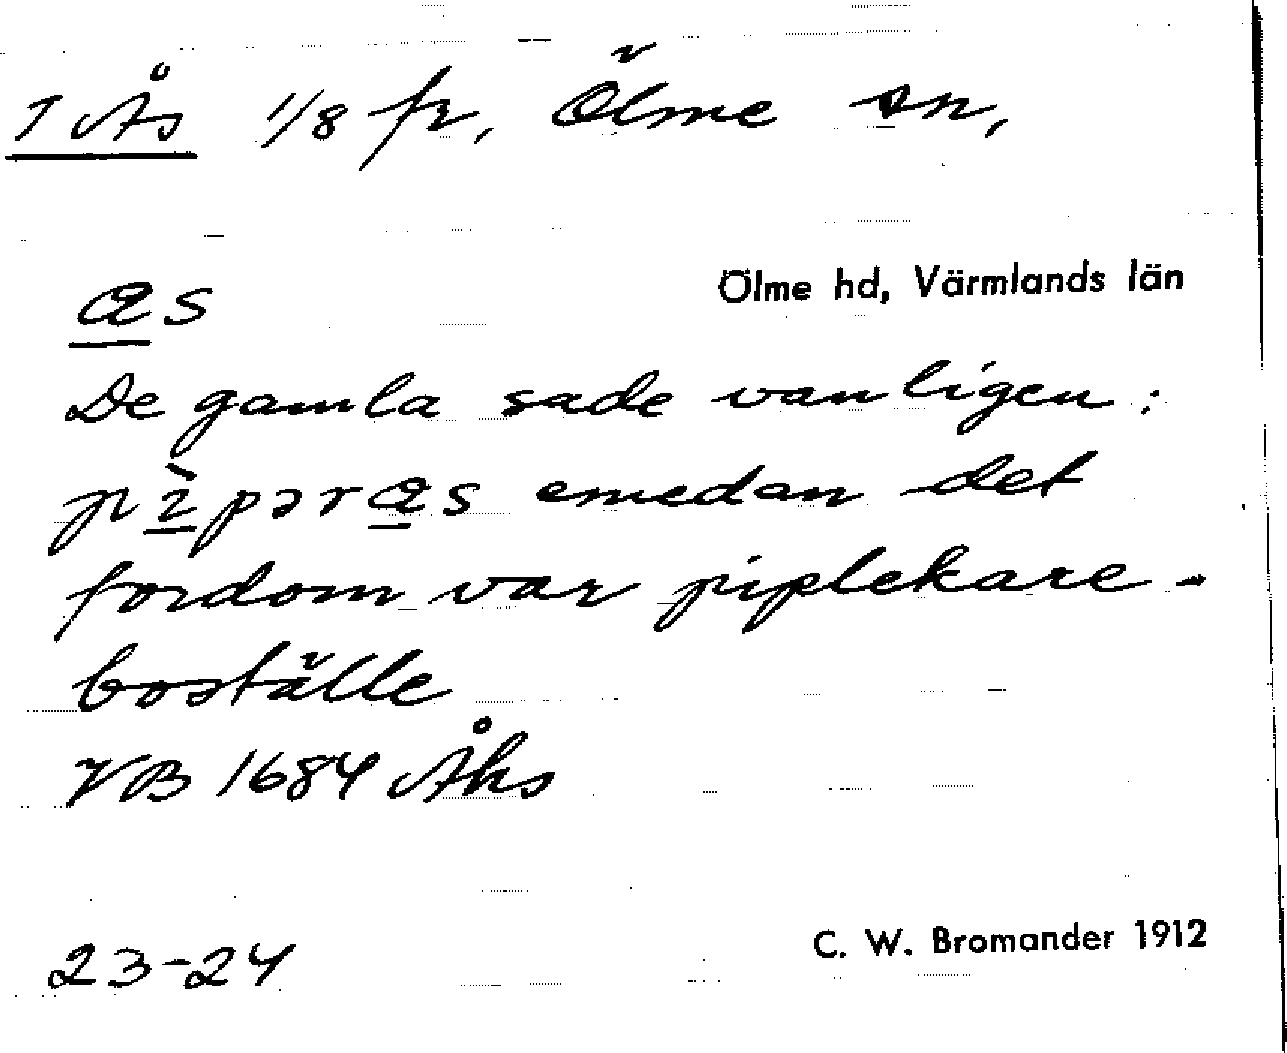 1 Ås 1/8 fr, Ölme sn,
Ölme hd, Värmlands län
as
De gamla sade vanligen:
pìpəras emedan det
fordom var piplekare-
boställe
VB 1684 Åhs
23-24
C. W. Bromander 1912